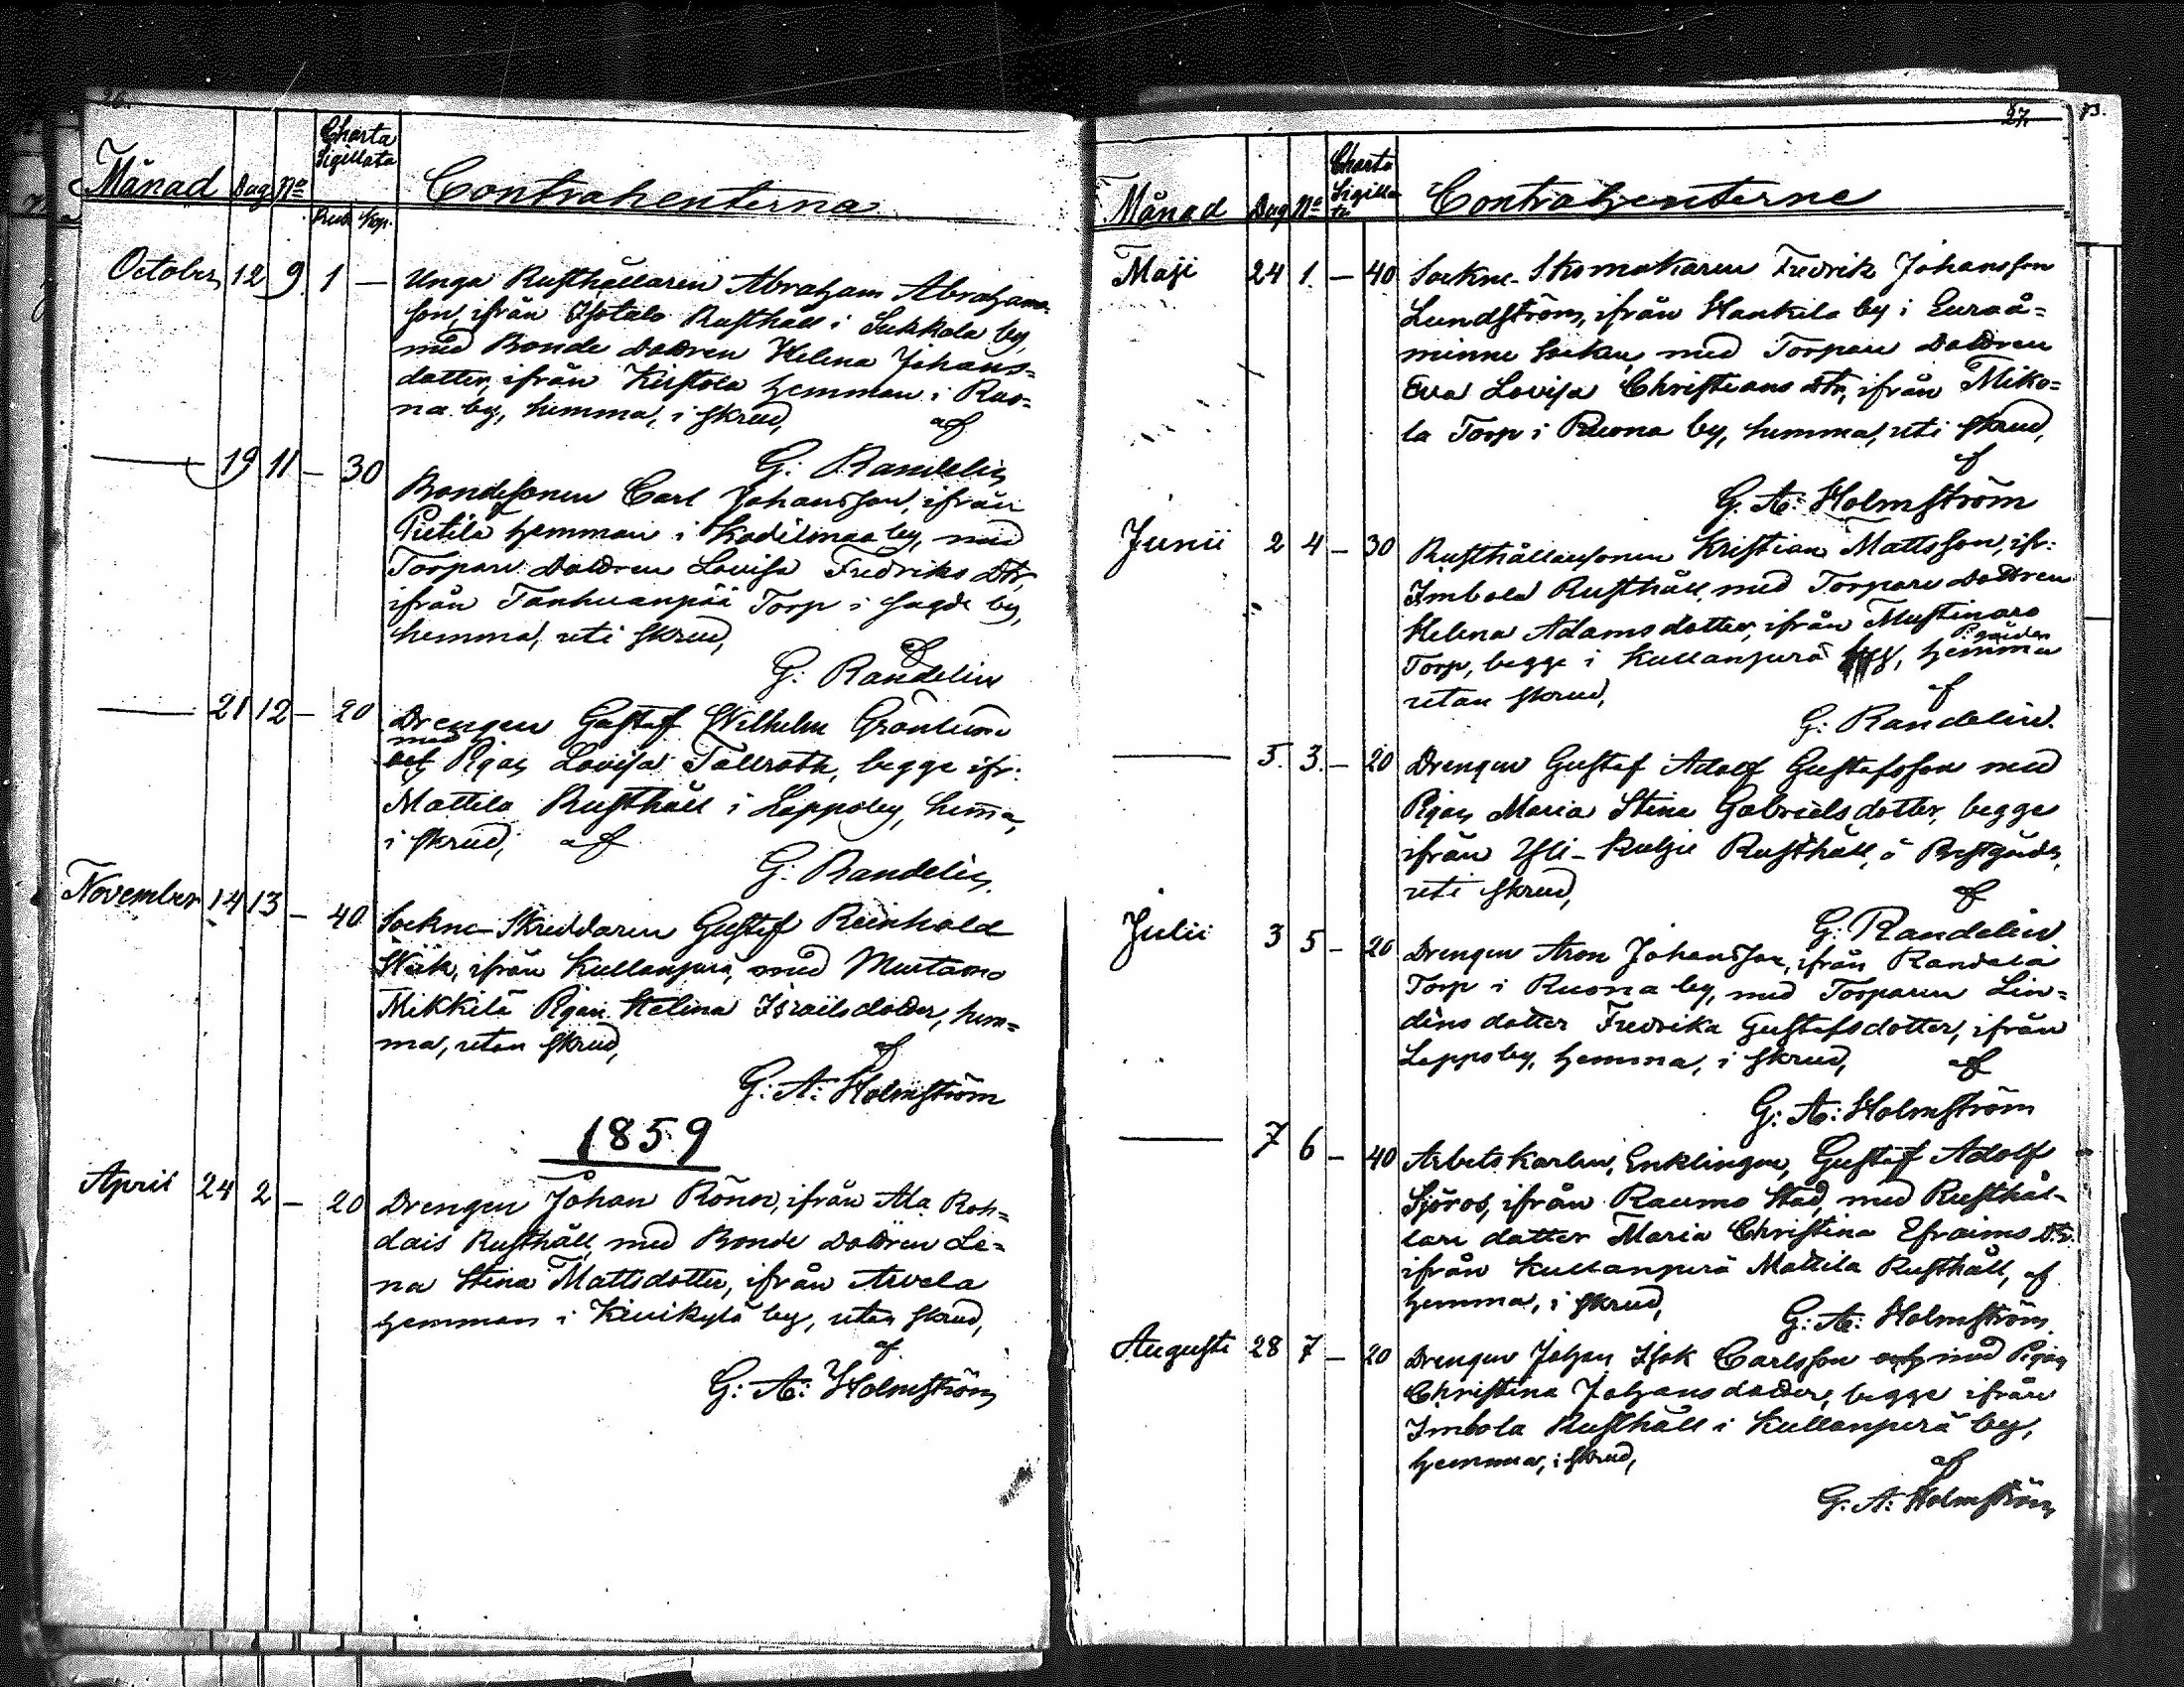 26.
Charta
Sigillata
Månad Dag No Contrahenterna
Rub Kop.
October 12 9. 1 — Unga Rusthållaren Abraham Abrahams
son, ifrån Isotalo Rusthåll i Sukkala by,
med Bonde Dottren Helena Johans=
dotter, ifrån Kirstola hemman i Ruo=
na by, hemma, i skrud,
af
G: Randelin
19 11 — 30
Bondesonen Carl Johansson, ifrån
Pietilä hemman i Kodiksnaa by, med
Torpare Dottren Lovisa Fredriks Dtr,
ifrån Tanhuanpää Torp i Sagde by,
hemma, uti skrud,
af
G: Randelin
21 12 — 20 Drengen Gustaf Wilhelm Grönlund
med
och Pigan Lovisa Tallroth, begge ifr:
Mattila Rusthåll i Lappoby, hemma,
i skrud, af
G: Randelin
November 14 13 — 40 Sockne-Skreddaren Gustaf Reinhold
Wiik, ifrån Kullanperä, med Murtamo
Mikkilä Pigan Helena Israelsdotter, hem=
ma, utan skrud,
af
G: A: Holmström
1859
April 24 2 — 20 Drengen Johan Rönn, ifrån Ala Roh=
dais Rusthåll, med Bonde Dottren Le=
na Stina Mattsdotter, ifrån Arvela
hemman i Kivikylä by, utan skrud,
af
G: A: Holmström
27.
73.
Charta
Sigilla
ta
Månad Dag No Contrahenterne
Maji 24 1. — 40 Sockne-Skomakaren Fredrik Johansson
Lundström, ifrån Hankila by i Euraå=
minne Socken, med Torpare Dottren
Eva Lovisa Christians Dtr, ifrån Miko=
la Torp i Ruona by, hemma, uti skrud,
af
G. A: Holmström
Junii 2 4 — 30 Rusthållaresonen Kristian Mattsson, ifr:
Imbola Rusthåll, med Torpare Dottren
Helena Adamsdotter, ifrån Mustinoro
Torp, begge i Kullanperä hemma
utan skrud,
af
G: Randelin.
5. 3. — 20 Drengen Gustaf Adolf Gustafsson med
Pigan Maria Stina Gabrielsdotter, begge
ifrån Yli-Kulju Rusthåll, å Prestgården,
uti skrud,
af
G: Randelin
Julii 3 5 — 20 Drengen Aron Johansson, ifrån Randala
Torp i Ruona by, med Torparen Lin=
dins dotter Fredrika Gustafsdotter, ifrån
Lappoby, hemma, i skrud, af
G: A: Holmström
7 6 — 40 Arbetskarlen, Enklingen, Gustaf Adolf
Sjöros, ifrån Raumo Stad, med Rusthål-
lare dotter Maria Christina Efraims Dtr.
ifrån Kullanperä Mattila Rusthåll, af
hemma, i skrud,
G: A: Holmström
Augusti 28 7 — 20 Drengen Johan Isak Carlsson och med Pigan
Christina Johansdotter, begge ifrån
Imbola Rusthåll i Kullanperä by,
hemma, i skrud,
af
G: A: Holmström